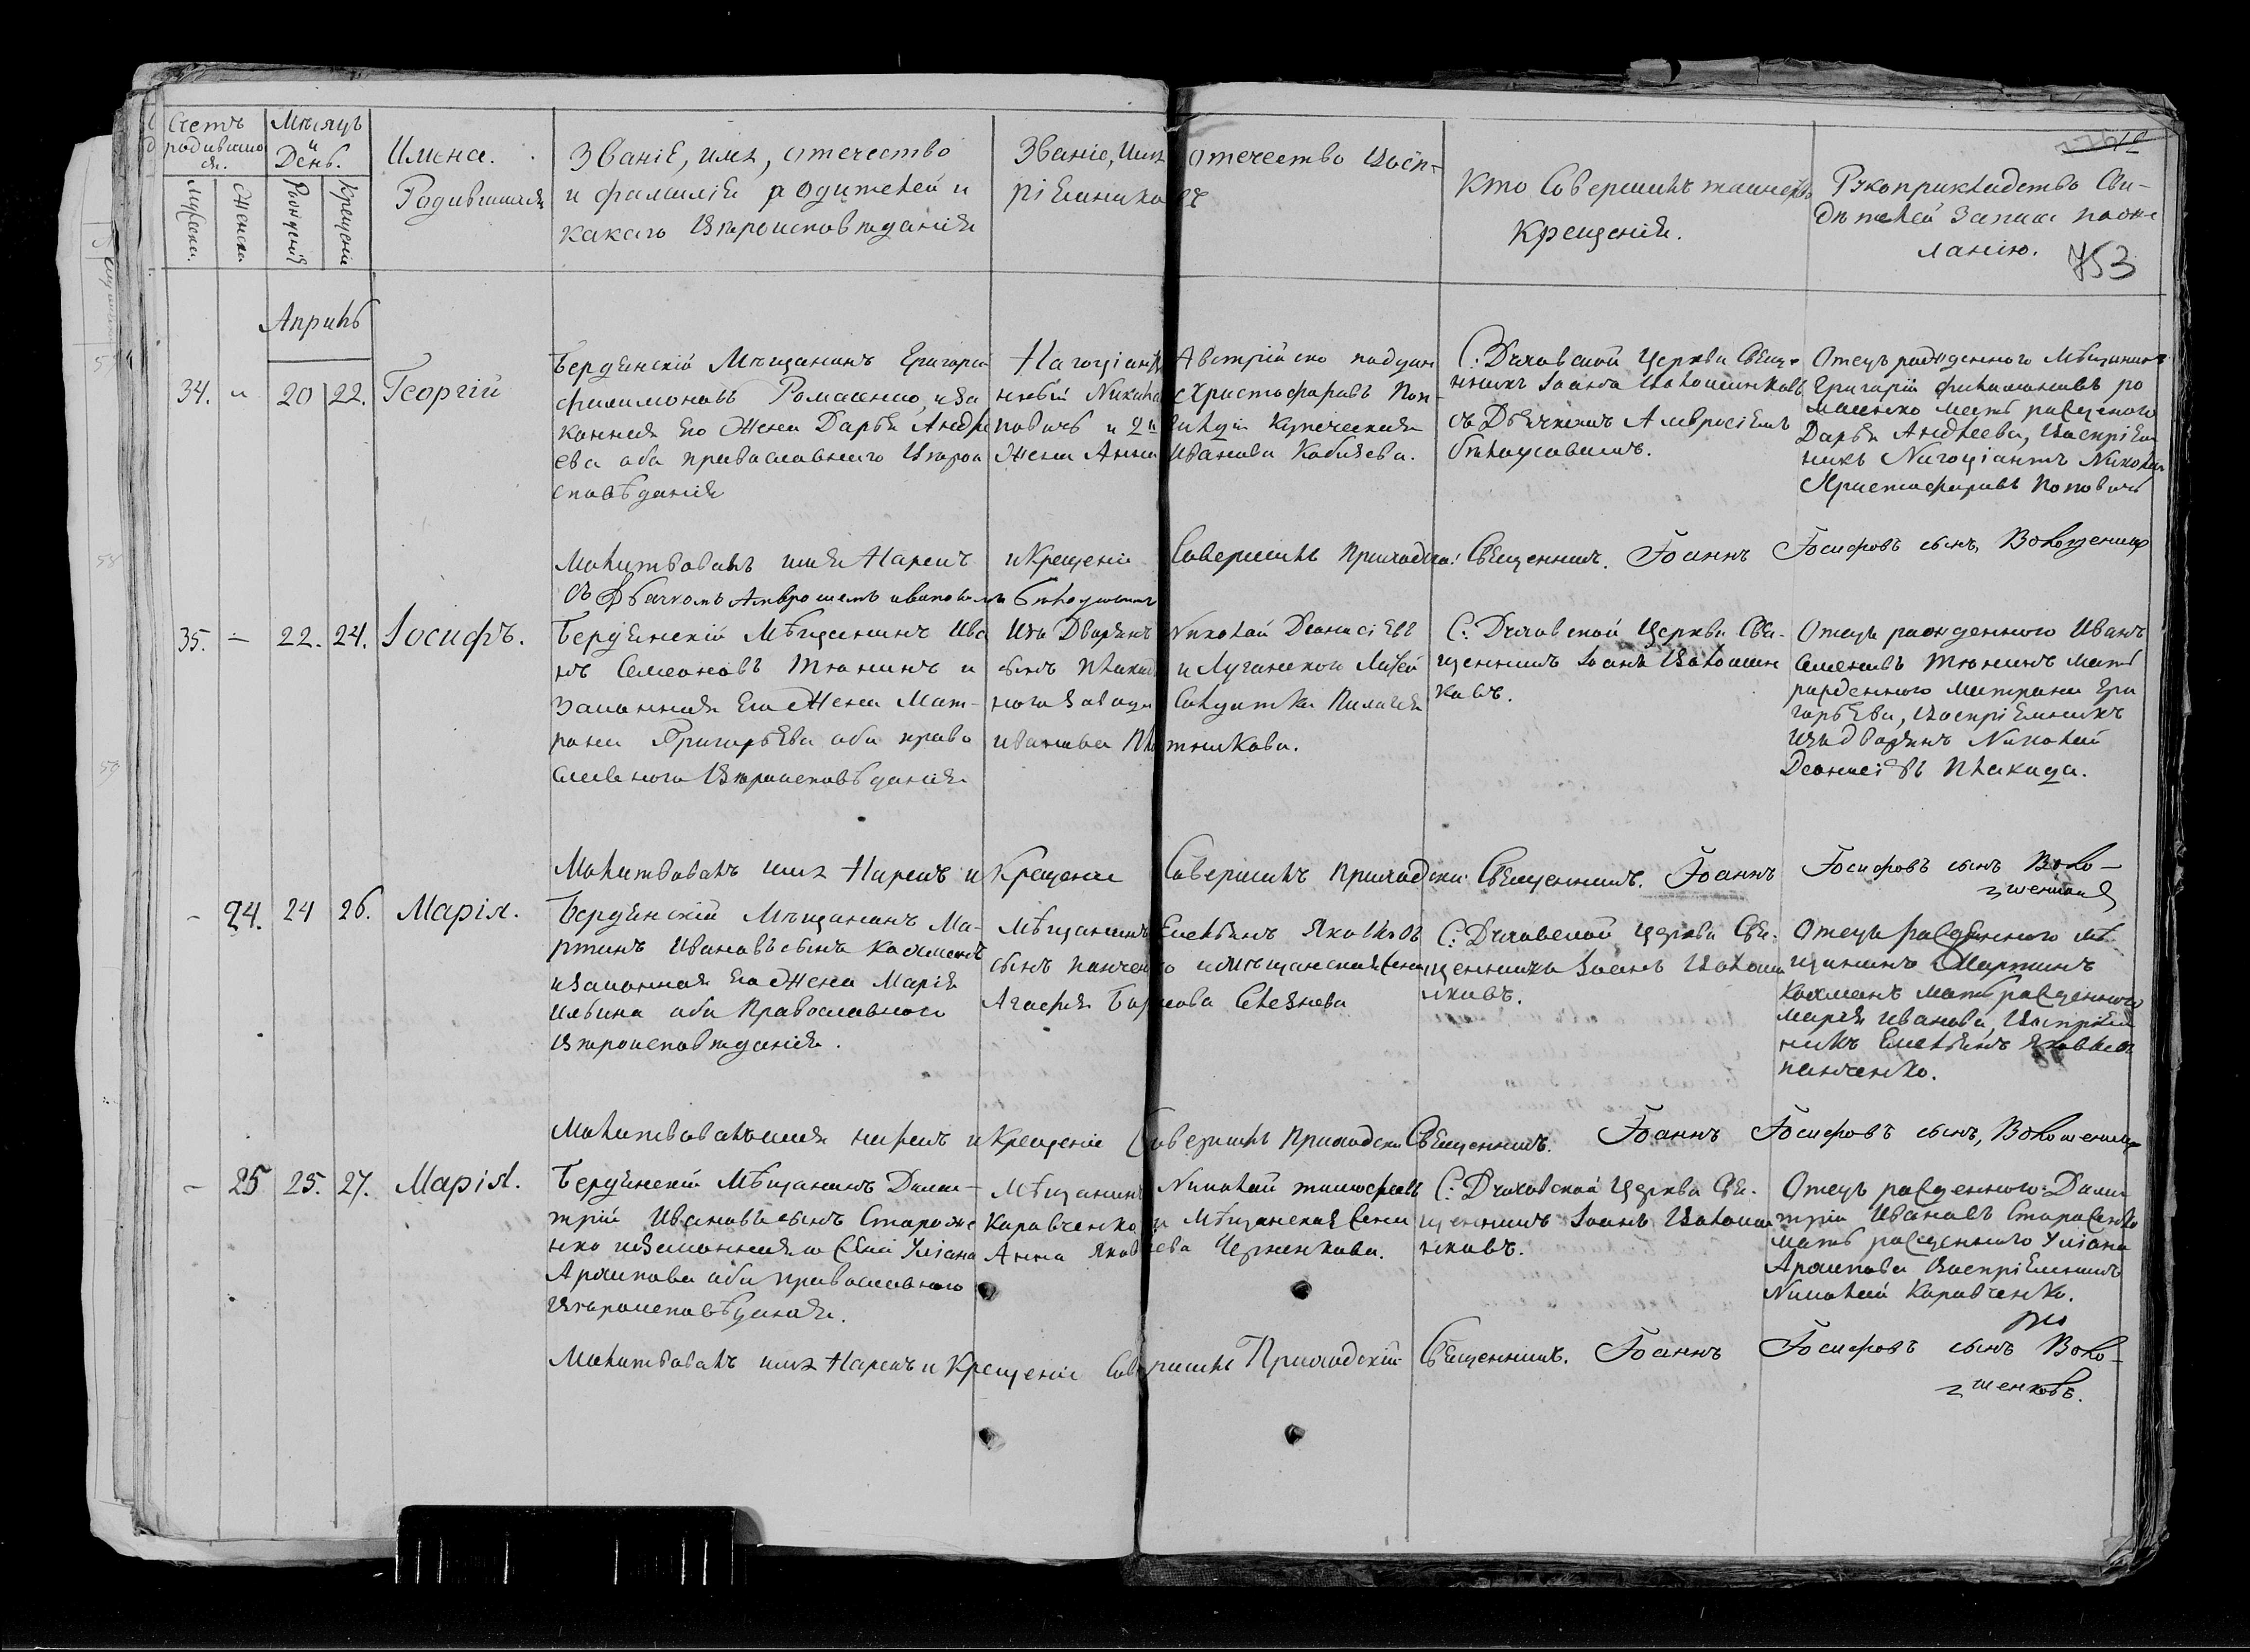 Счетъ
родившихо
ся.
Мѣсяцъ
и
День.
Мужеска.
Женска.
Рожденія
Крещенія
Имена.
Родившихся
Званіе, имя, отечество
и фамилія родителей и
какаго Вѣроисповѣданія
Званіе, Имя отечество Восп-
ріемниковъ
Кто Совершилъ таинство
Крещенія.
Рукоприкладство Сви-
дѣтелей записи поже
ланію.
753
Апрѣль
34. 20 22. Георгій
Бердянскій Мѣщанинъ Григорій
филимоновъ Романенко, иза
конная Его Жена Дарья Андре
ева оба православнаго Вѣрои
сповѣданія
Австрійско поддан
Христофоровъ Поп-
повичъ и 2й гильдіи Купеческая
Жена Анна Иванова Кобызева.
С: Духовской Церкви Свяще-
нникъ Іоаннъ Волошинковъ
съ Дьячкомъ Амвросіемъ
бѣлоусовымъ.
Отецъ рожденного Мѣщанинъ
Григорій филимоновъ ро
маненко мать рожденного
Дарья Андреева, Воспріем
никъ Нигоціантъ Николай
Христофоровъ Поповичъ
Молитвовалъ имя Нарекъ и Крещеніе Совершилъ Приходскій Священникъ. Іоаннъ Іосифовъ сынъ, Волошенков
съ Дьячкомъ Амвросіемъ ивановымъ Бѣлоусовымъ
35. — 22. 24. Іосифъ.
Бердянскій Мѣщанинъ Ива
нъ Семеновъ Тюнинъ и
Законная Его Жена Мат-
рона Григорьева оба право
славного Вѣроисповѣданія
Изъ Дворянъ Николай Деонисіевъ
сынъ Плакида и Луганского Литей
ного завода Солдатка Пилагея
иванова Плотникова.
С: Духовской Церкви Свя-
щенникъ Іоанъ Волошин
ковъ.
Отецъ рожденного Иванъ
Семеновъ Тюнинъ мать
рожденного Матрона Гри
горьева, Воспріемникъ
Изъ дворянъ Николай
Деонисіевъ Плакида.
Молитвовалъ имя Нарекъ и Крещеніе Совершилъ Приходскій Священникъ. Іоаннъ Іосифовъ сынъ Воло-
шенков
— 24. 24 26. Марія.
Бердянскій Мѣщанинъ Ма-
ртинъ Ивановъ сынъ Кохманъ
изаконная Его Жена Марія
Ильина оба Православного
Вѣроисповѣданія.
Мѣщанинъ Емельянъ Яковлевъ
сынъ панченко и мѣщанская жена
Агафья
С: Духовской Церкви Свя-
щенникъ Іоанъ Волоши
нковъ.
Отецъ рожденного мѣ
щанинъ Мартинъ
Кохманъ мать рожденного
Марія Иванова, Воспріем
никъ Емельянъ Яковлевъ
панченко.
Молитвовалъ имя нарекъ и Крещеніе Совершилъ Приходскій Священникъ. Іоаннъ Іосифовъ сынъ, Волошенков
— 25 25. 27. Марія.
Бердянскій Мѣщанинъ Дими-
трій Ивановъ сынъ Староже
нко изаконная его жена Уліана
Архипова оба православного
Вѣроисповѣданія.
Мѣщанинъ Николай тимофеевъ
Каравченко и Мѣщанская жена
Анна Яковлева Черненкова.
С: Духовской Церкви Свя-
щенникъ Іоанъ Волоши
нковъ.
Отецъ рожденного Дими
трій Ивановъ Староженко
мать рожденного Уліана
Архипова Воспріемникъ
Николай Каравченко.
Молитвовалъ имя Нарекъ и Крещеніе Совершилъ Приходскій Священникъ. Іоаннъ Іосифовъ сынъ Воло-
шенковъ.